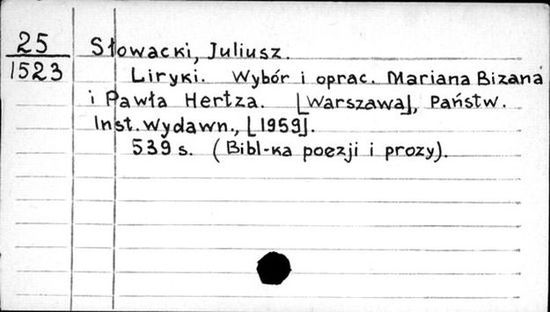 25
1523
Słowacki, Juliusz.
Liryki. Wybór i oprac. Mariana Bizana
i Pawła Hertza. [Warszawa], Państw.
Inst. Wydawn., [1959].
539 s. (Bibl-ka poezji i prozy).